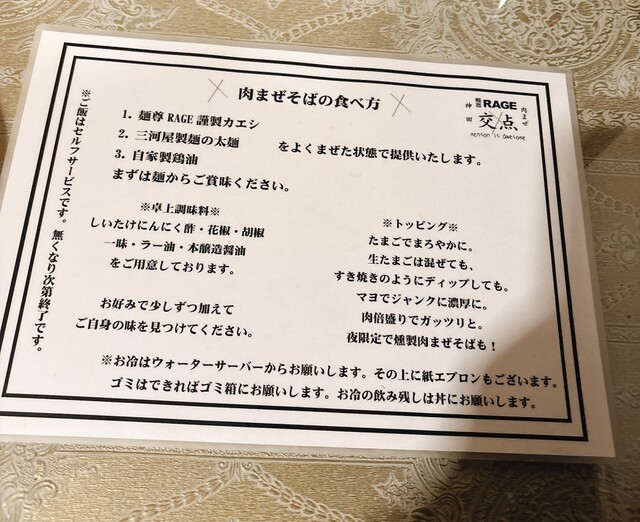 肉まぜそばの食べ方
麺尊 RAGE
神田
肉まぜ
交点
menson is awesome
1. 麺尊RAGE謹製カエシ
2. 三河屋製麺の太麺
3. 自家製鶏油
をよくまぜた状態で提供いたします。
まずは麺からご賞味ください。
※ご飯はセルフサービスです。無くなり次第終了です。
※卓上調味料※
しいたけにんにく酢・花椒・胡椒
一味・ラー油・本醸造醤油
をご用意しております。
お好みで少しずつ加えて
ご自身の味を見つけてください。
※トッピング※
たまごでまろやかに。
生たまごは混ぜても、
すき焼きのようにディップしても。
マヨでジャンクに濃厚に。
肉倍盛りでガッツリと。
夜限定で燻製肉まぜそばも！
※お冷はウォーターサーバーからお願いします。その上に紙エプロンもございます。
ゴミはできればゴミ箱にお願いします。お冷の飲み残しは丼にお願いします。